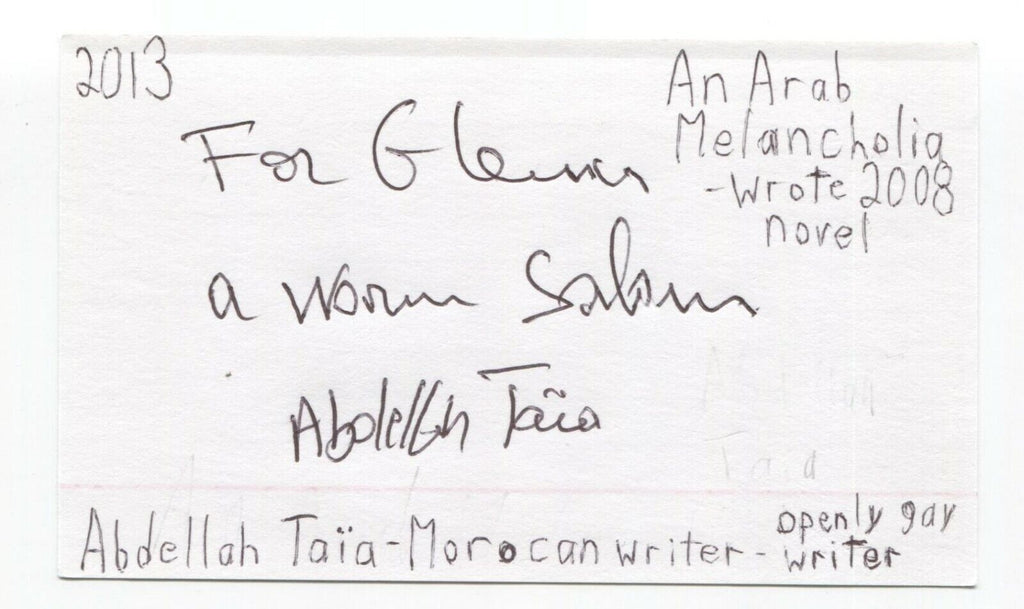 2013
An Arab
Melancholia
-wrote 2008
novel
For Glenn
a warm Salam
Abdellah Taïa
Abdellah Taïa-Morocan writer-
openly gay
writer